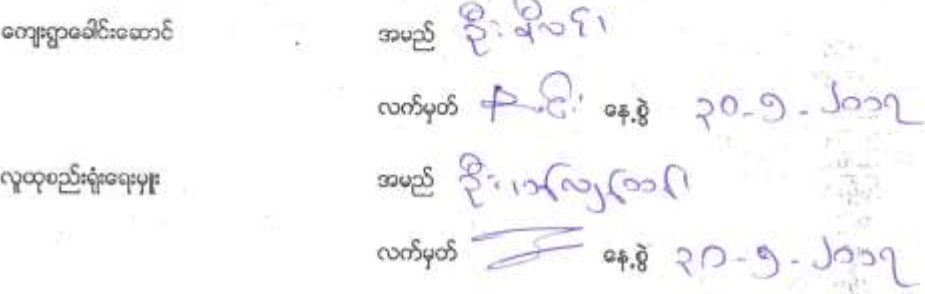 ကျေးရွာခေါင်းဆောင် အမည် ဦး
လက်မှတ် နေ့စွဲ ၃၀-၅-၂၀၁၇
လူထုစည်းရုံးရေးမှူး အမည် ဦး
လက်မှတ် နေ့စွဲ ၃၀-၅-၂၀၁၇